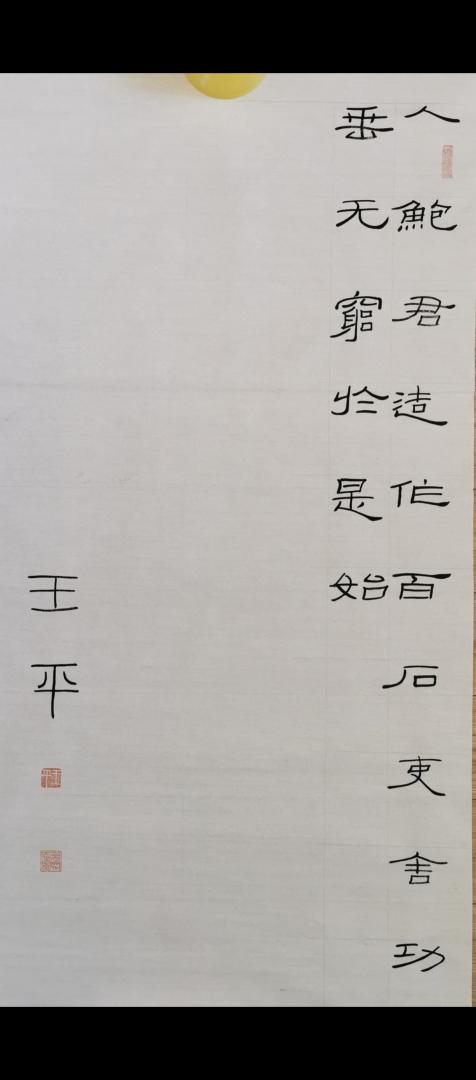 人鮑君造作百石吏舍功
垂无窮於是始
王平